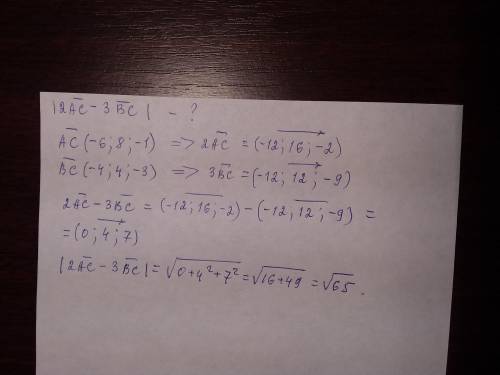 |2A̅C̅ - 3B̅C̅| - ?
A̅C̅(-6; 8; -1) => 2A̅C̅ = (-12; 16; -2)
B̅C̅(-4; 4; -3) => 3B̅C̅ = (-12; 12; -9)
2A̅C̅ - 3B̅C̅ = (-12; 16; -2) - (-12; 12; -9) =
= (0; 4; 7)
|2A̅C̅ - 3B̅C̅| = √(0+4²+7²) = √(16+49) = √65.